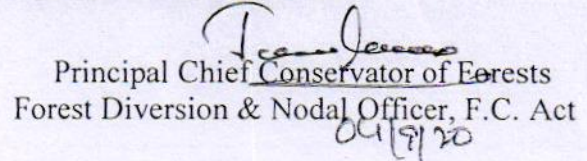 Principal Chief Conservator of Forests
Forest Diversion & Nodal Officer, F.C. Act
04/9/20